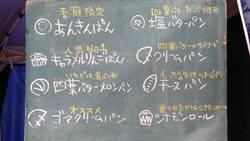 季節限定
あんきんぱん
人気No.1
キャラメルりんごぱん
いちどは食べて
四葉バターメロンパン
オススメ
ゴマクリームパン
四葉バター
塩バターパン
四葉バター
クリームパン
チーズパン
シナモンロール